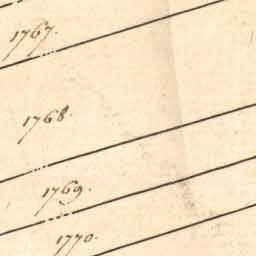 1767.
1768.
1769.
1770.